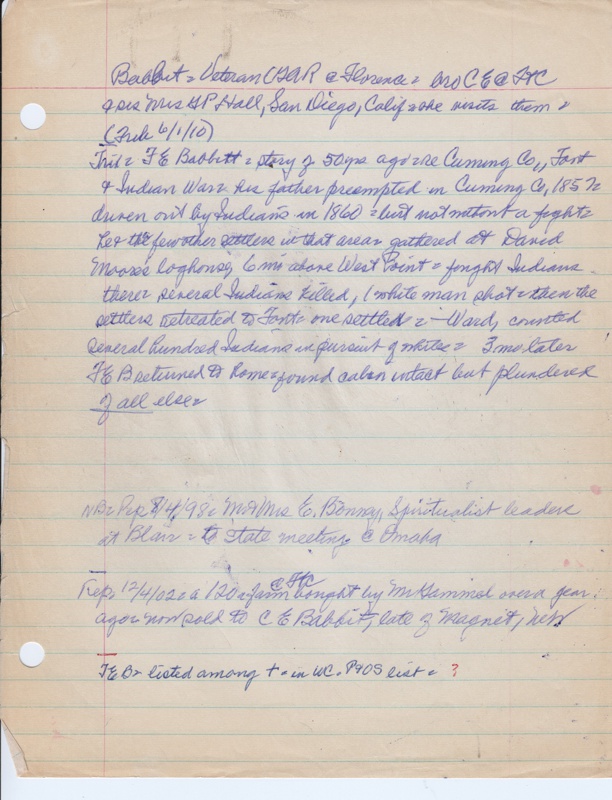 Babbit = Veteran GAR @ Florence = bro C E @ FtC
& sis Mrs G P Hall, San Diego, Calif = she visits them =
(Trib 6/1/10)
Trib = F E Babbitt = story of 50 yrs ago = re Cuming Co,, Font
& Indian War = his father preempted in Cuming Co, 1857 =
driven out by Indians in 1860 = but not without a fight =
he & the few other settlers in that area = gathered at David
Moore's loghouse, 6 mi above West Point = fought Indians =
there = several Indians killed, 1 white man shot = then the
settlers retreated to Font = one settled = - Ward, counted
several hundred Indians in pursuit of whites = 3 mo later
F E B returned to home = found cabin intact but plundered
of all else =
NB = Rep 8/4/98 = Mr & Mrs E. Bonny, Spiritualist leaders
at Blair = to state meeting @ Omaha
Rep 12/4/02 = a 120 a farm @ FtC bought by Mr Hammel over a year
ago = now sold to C E Babbitt, late of Magnet, Neb
F E B = listed among + = in WC. P & OS list = ?